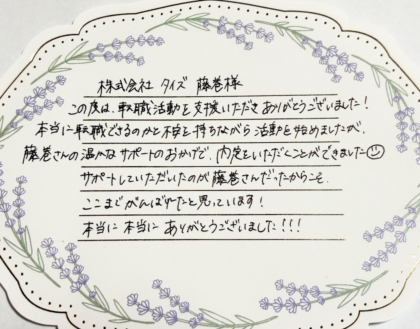 株式会社 タイズ 藤巻様
この度は、転職活動を支援いただきありがとうございました!
本当に転職できるのかと不安を持ちながら活動を始めましたが、
藤巻さんの温かなサポートのおかげで、内定をいただくことができました☺
サポートしていただいたのが藤巻さんだったからこそ、
ここまでがんばれたと思っています!
本当に本当にありがとうございました!!!